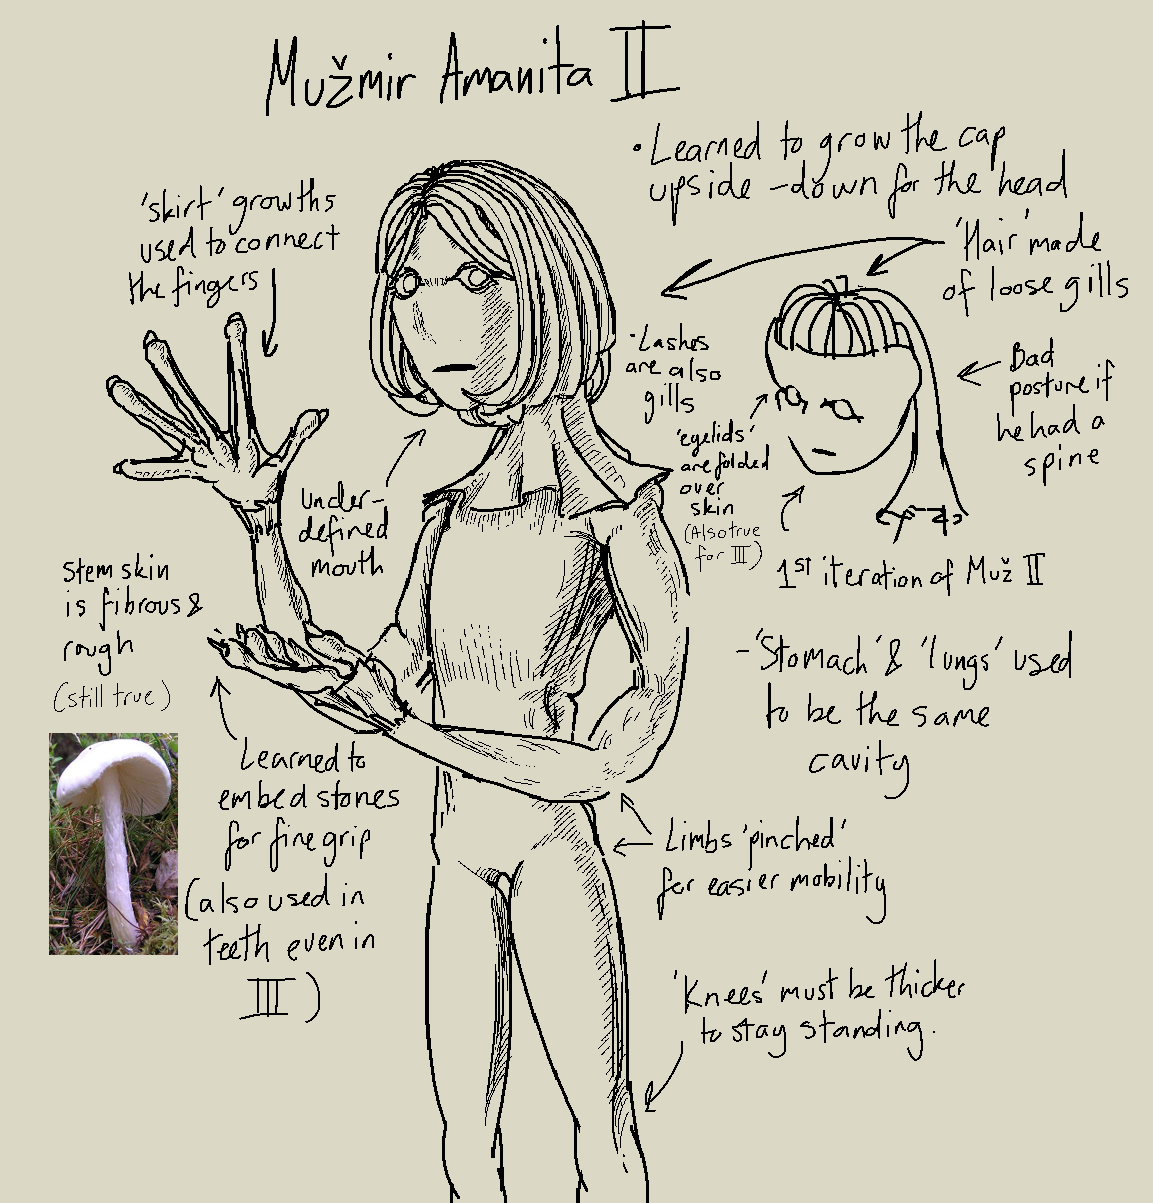 Mužmir Amanita II
• Learned to grow the cap
upside-down for the head
'Hair' made
of loose gills
'skirt' growths
used to connect
the fingers
• Lashes
are also
gills
Bad
posture if
he had a
spine
'eyelids'
are folded
over
skin
(Also true
for III)
1st iteration of Muž II
under-
defined
mouth
Stem skin
is fibrous &
rough
(still true)
- 'Stomach' & 'lungs' used
to be the same
cavity
Learned to
embed stones
for fine grip
(also used in
teeth even in
III)
Limbs 'pinched'
for easier mobility
'Knees' must be thicker
to stay standing.